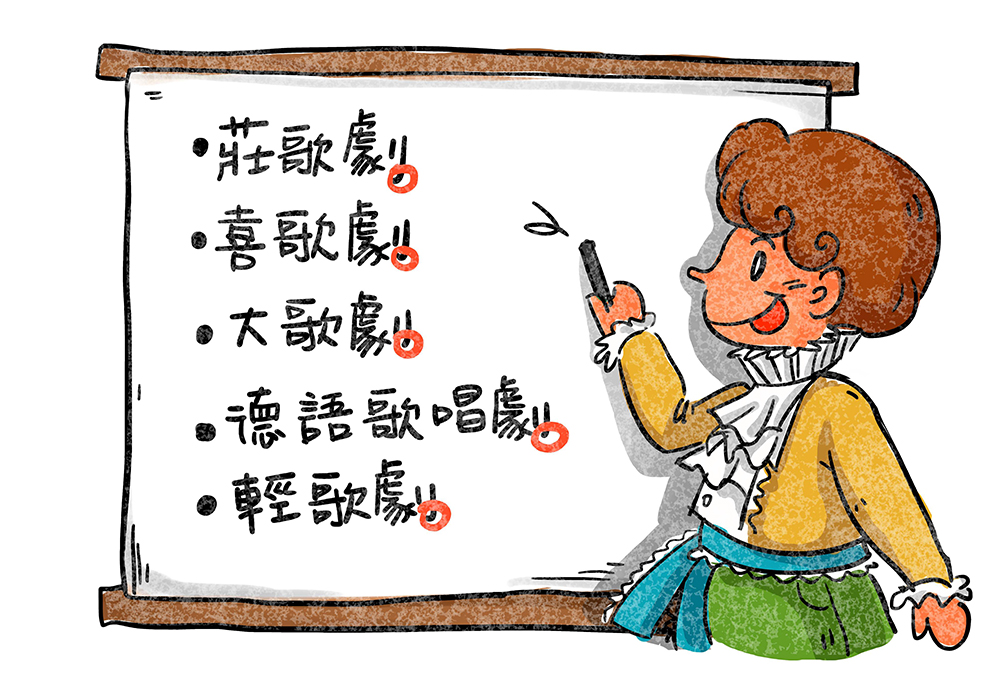 •莊歌劇
•喜歌劇
•大歌劇
•德語歌唱劇
•輕歌劇